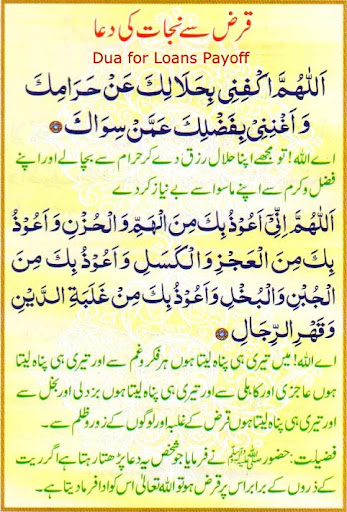 قرض سے نجات کی دعا
Dua for Loans Payoff
اَللّٰهُمَّ اكْفِنِىْ بِحَلَالِكَ عَنْ حَرَامِكَ
وَاَغْنِنِىْ بِفَضْلِكَ عَمَّنْ سِوَاكَ
اے اللہ! تو مجھے اپنا حلال رزق دے کر حرام سے بچا لے اور اپنے
فضل و کرم سے اپنے ماسوا سے بے نیاز کر دے
اَللّٰهُمَّ اِنِّىْ اَعُوْذُ بِكَ مِنَ الْهَمِّ وَالْحُزْنِ وَاَعُوْذُ
بِكَ مِنَ الْعَجْزِ وَالْكَسَلِ وَاَعُوْذُ بِكَ مِنَ
الْجُبْنِ وَالْبُخْلِ وَاَعُوْذُ بِكَ مِنْ غَلَبَةِ الدَّيْنِ
وَقَهْرِ الرِّجَالِ
اے اللہ! میں تیری ہی پناہ لیتا ہوں ہر فکر و غم سے اور تیری ہی پناہ لیتا
ہوں عاجزی اور کاہلی سے اور تیری ہی پناہ لیتا ہوں بزدلی اور بخل سے
اور تیری ہی پناہ لیتا ہوں قرض کے غلبہ اور لوگوں کے زور و ظلم سے۔
فضیلت: حضور ﷺ نے فرمایا جو شخص یہ دعا پڑھتا رہتا ہے اگر ریت
کے ذروں کے برابر اس پر قرض ہو تو اللہ تعالیٰ اس کو ادا فرما دیتا ہے۔